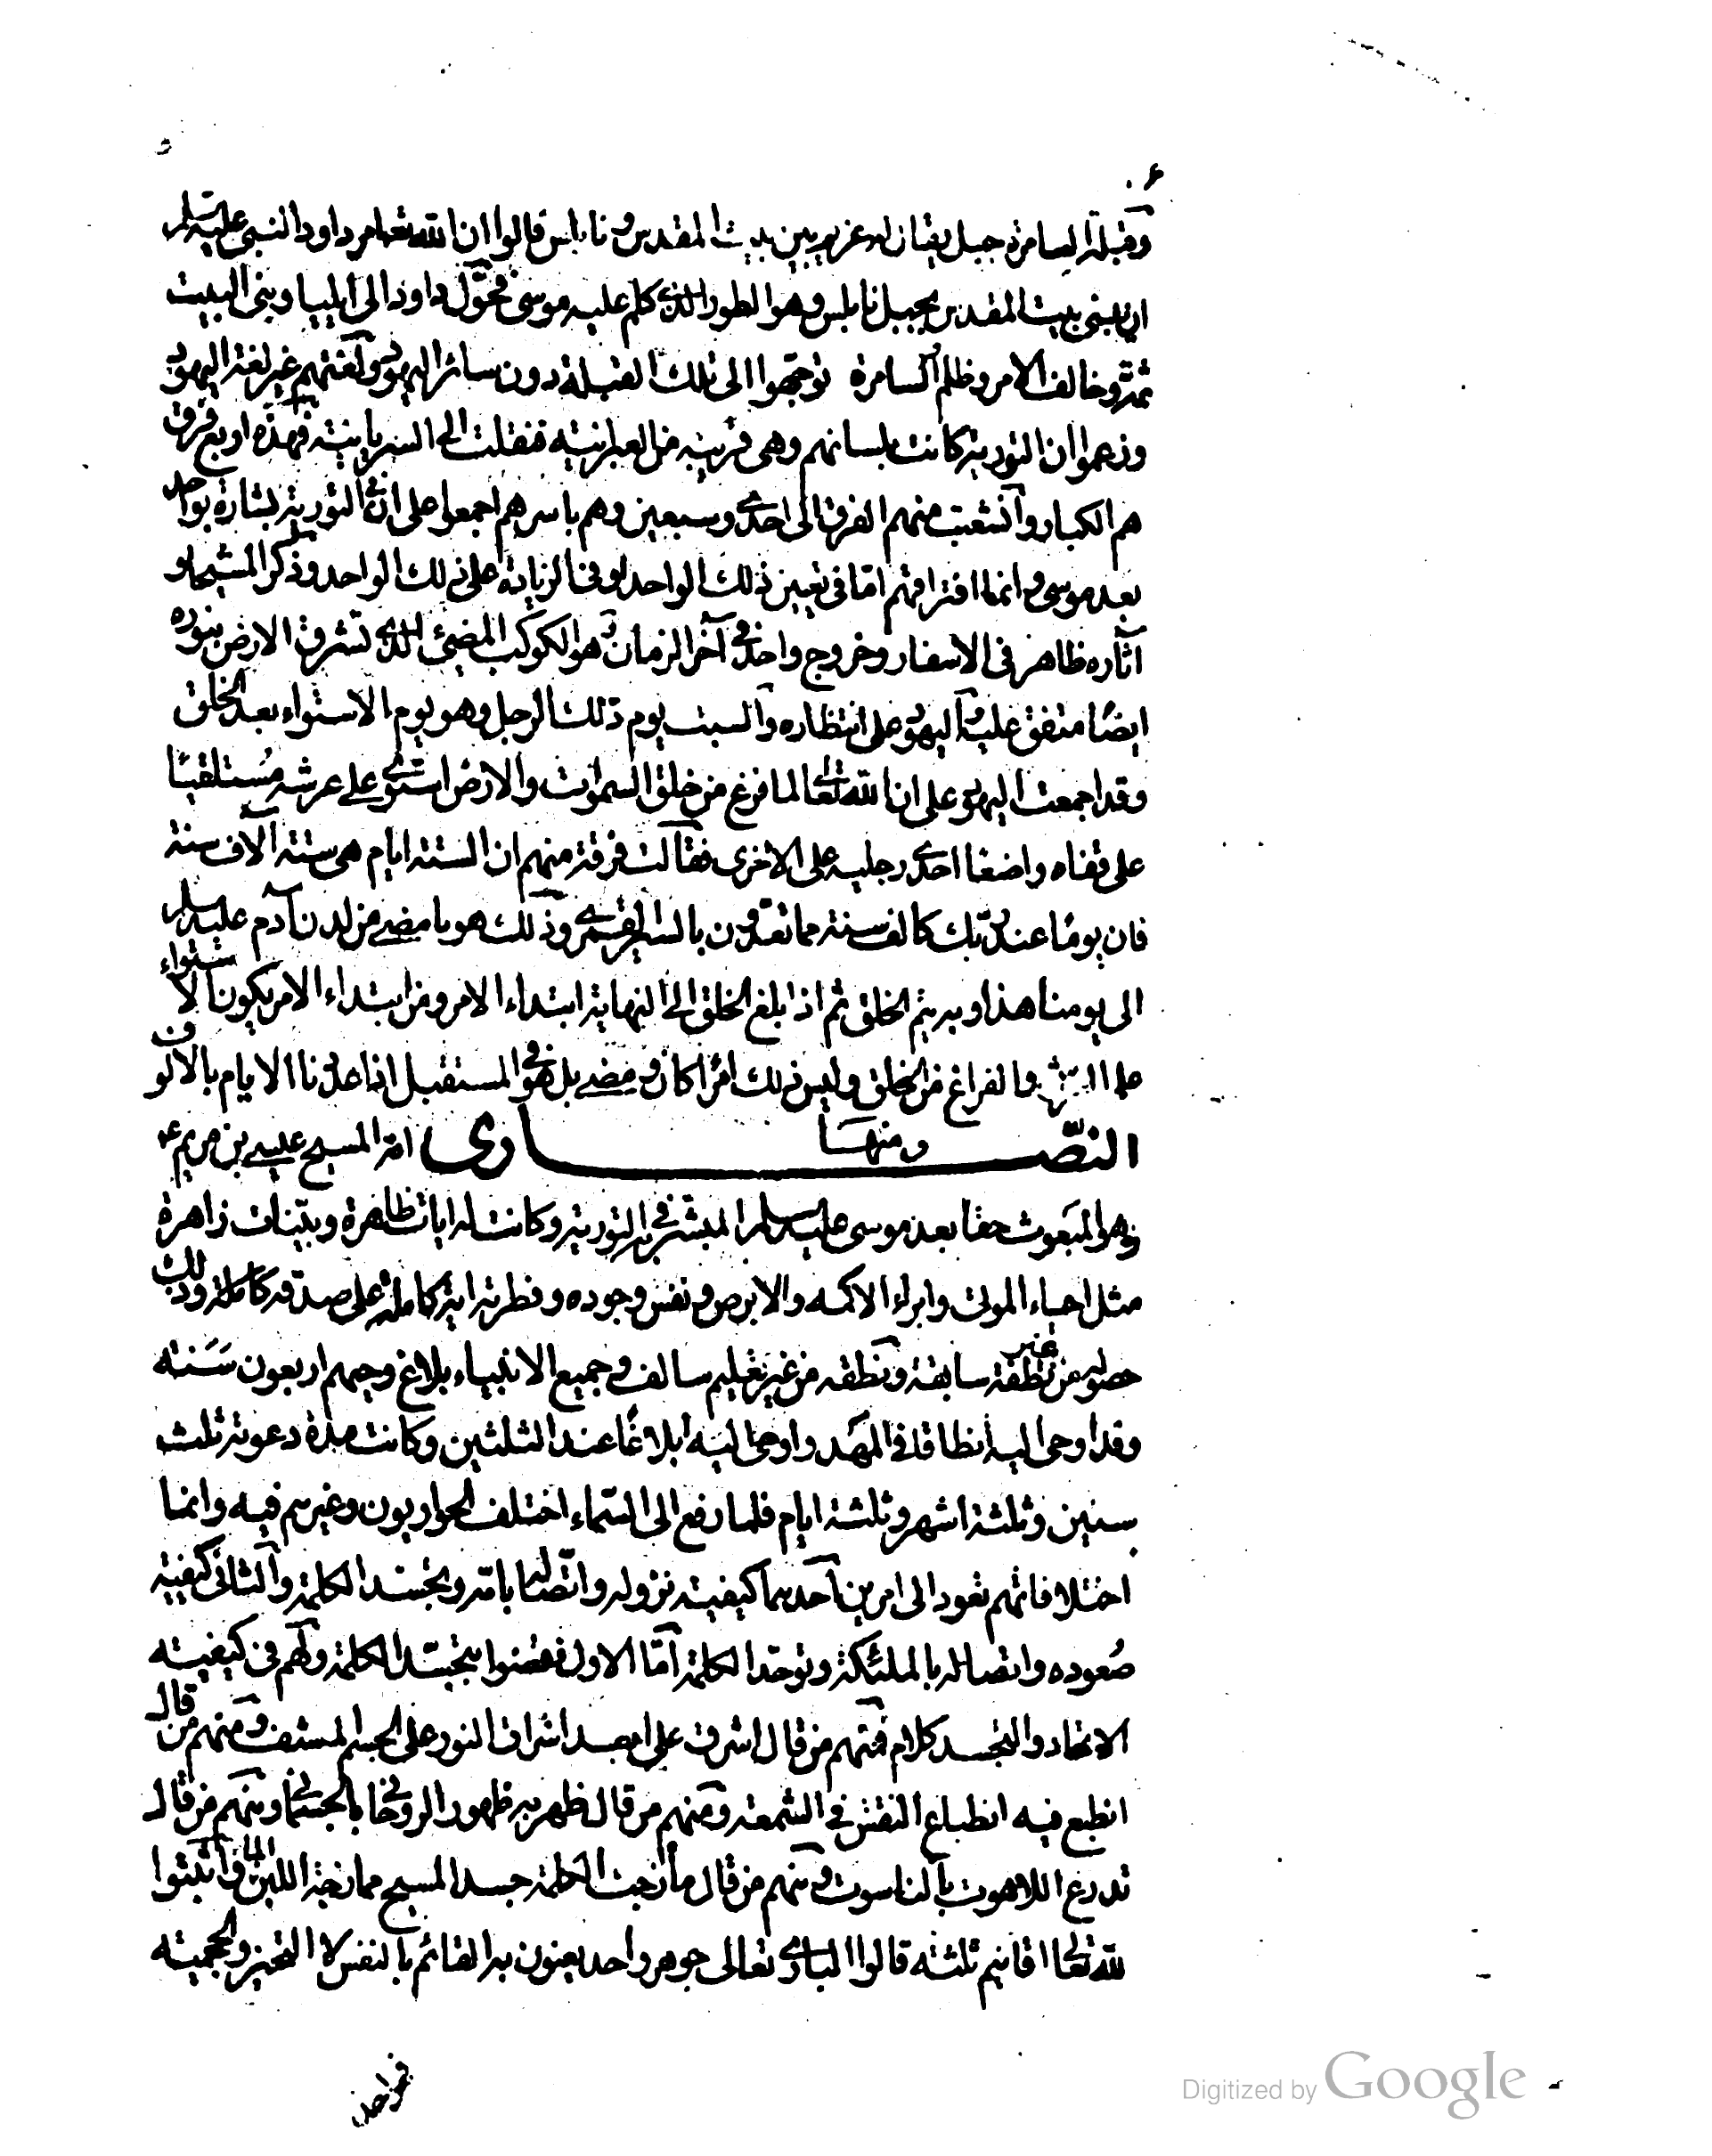 وقبلة السامرة جبل يقال له غريم بين بيت المقدس ونابلس قالوا ان الله تعالى امر داود النبى عليه السلم
ان يبنى بيت المقدس بجبل نابلس وهو الطور الذى كلم عليه موسى فتحول داود الى ايليا وبنى البيت
ثمة وخالف الامر وظلم والسامرة توجهوا الى تلك القبلة دون سائر اليهود ولغتهم غير لغة اليهود
وزعموا ان التورية كانت بلسانهم وهى قريبة من العبرانية فنقلت الى السريانية فهذه اربع فرق
هم الكبار وانشعبت منهم الفرق الى احدى وسبعين وهم باسرهم اجمعوا على ان فى التورية بشارة بواحد
بعد موسى وانما افتراقهم اما فى تعيين ذلك الواحد او فى الزيادة على ذلك الواحد وذكر المشيحا و
آثاره ظاهر فى الاسفار وخروج واحد فى آخر الزمان وهو الكوكب المضيئ الذى تشرق الارض بنوره
ايضا متفق عليه واليهود على انتظاره والسبت يوم ذلك الرجل وهو يوم الاستواء بعد الخلق
وقد اجمعت اليهود على ان الله تعالى لما فرغ من خلق السموات والارض استوى على عرشه مستلقيا
على قفاه واضعا احدى رجليه على الاخرى فقالت فرقة منهم ان الستة ايام هى ستة آلاف سنة
فان يوما عند ربك كالف سنة مما تعدون بالسير القمرى وذلك هو ما مضى من لدن آدم عليه السلم
الى يومنا هذا وبه يتم الخلق ثم اذا بلغ الخلق الى النهاية ابتداء الامر ومن ابتداء الامر يكون الاستواء
على العرش والفراغ من الخلق وليس ذلك امرا كان ومضى بل هو فى المستقبل اذا عددنا الايام بالالوف
ومنها النصارى امة المسيح عيسى بن مريم ع
وهو المبعوث حقا بعد موسى عليه السلم المبشر به فى التورية وكانت له ايات ظاهرة وبينات زاهرة
مثل احياء الموتى وابراء الاكمه والابرص ونفس وجوده وفطرته اية كاملة على صدقه كاملة وذلك
حصوله من غير نطفة سابقة ونطقه من غير تعليم سالف وجميع الانبياء بلاغ وحيهم اربعون سنة
وقد اوحى اليه انطاقا فى المهد واوحى اليه ابلاغا عند الثلثين وكانت مدة دعوته ثلث
سنين وثلثة اشهر وثلثة ايام فلما رفع الى السماء اختلف الحواريون وغيرهم فيه وانما
اختلافاتهم تعود الى امرين احدهما كيفية نزوله واتصاله بامه وتجسد الكلمة والثانى كيفية
صعوده واتصاله بالملئكة وتوحد الكلمة اما الاول فقضوا بتجسد الكلمة ولهم فى كيفية
الاتحاد والتجسد كلام فمنهم من قال اشرق على الجسد اشراق النور على الجسم المشف ومنهم من قال
انطبع فيه انطباع النقش فى الشمعة ومنهم من قال ظهر به ظهور الروحانى بالجسمانى ومنهم من قال
تدرع اللاهوت بالناسوت ومنهم من قال مازجت الكلمة جسد المسيح ممازجة اللبن الماء واثبتوا
لله تعالى اقانيم ثلثة قالوا البارى تعالى جوهر واحد يعنون به القائم بالنفس لا التحيز والحجمية
Digitized by Google